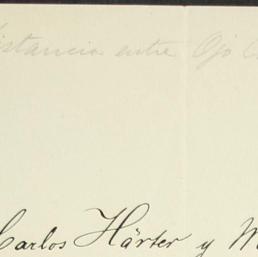 istancia entre Ojo
Carlos Härter y